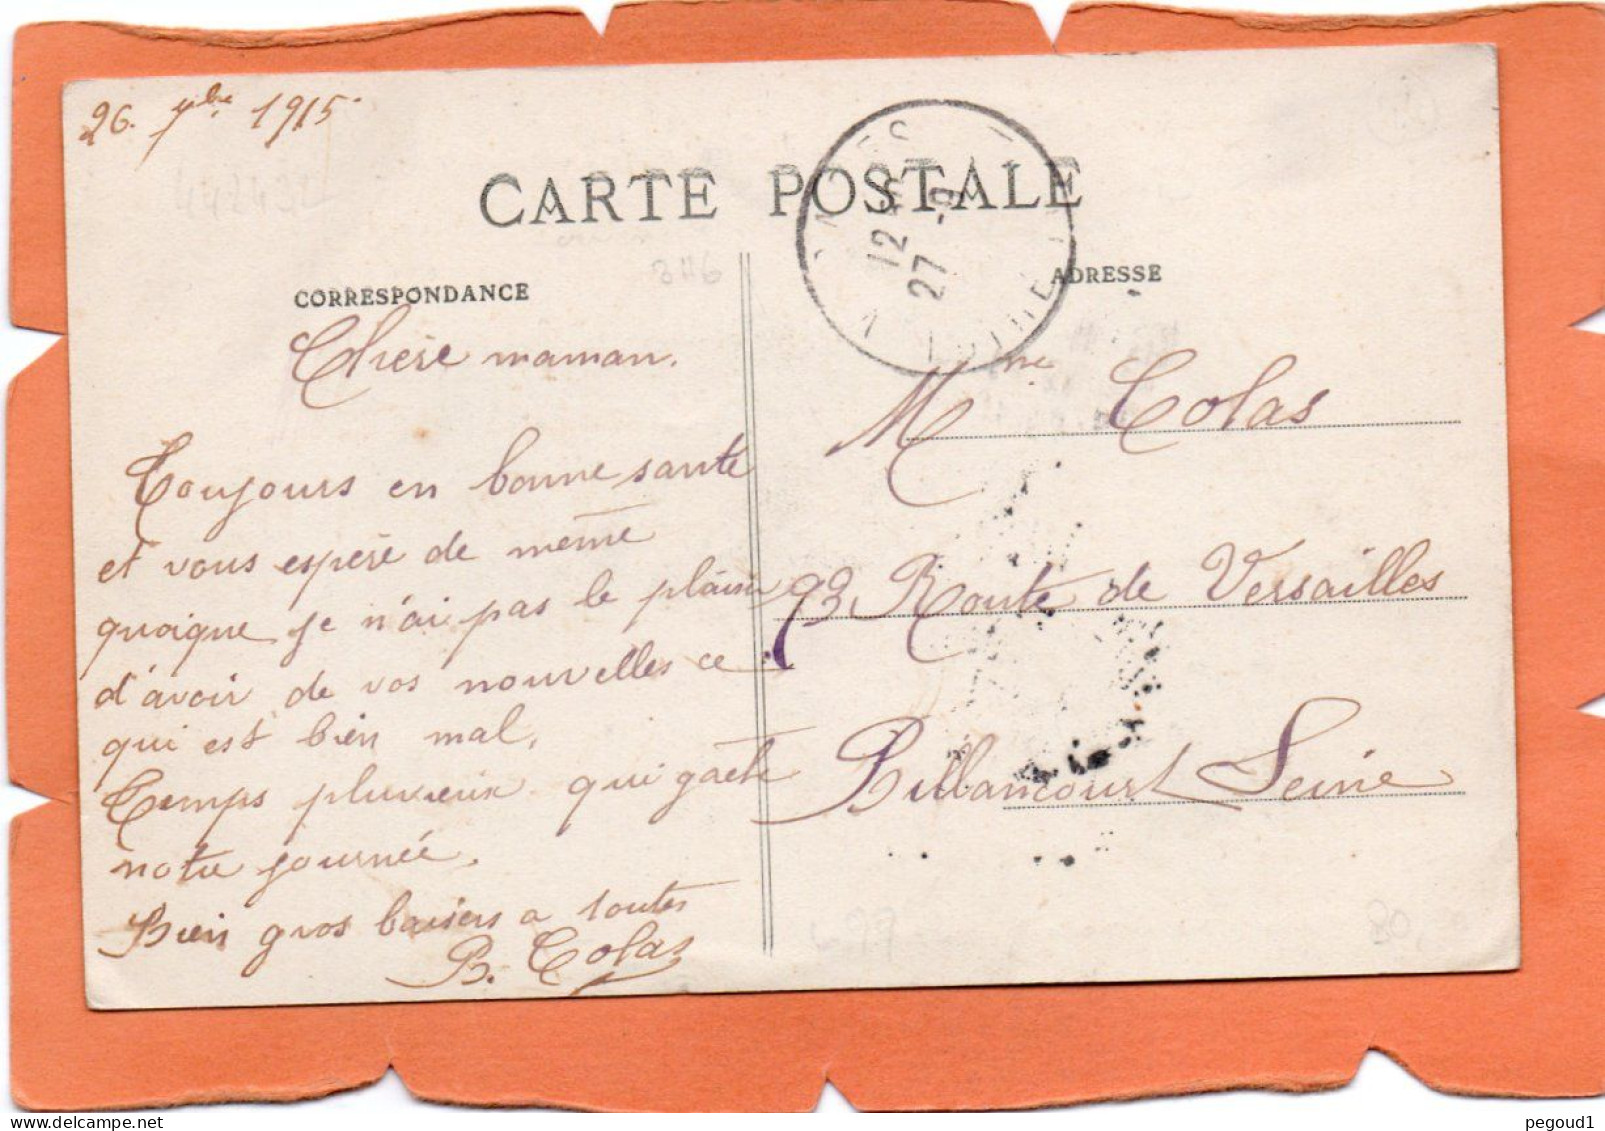 26. 7bre 1915.
CARTE POSTALE
CORRESPONDANCE
ADRESSE
12
27 -9
Chère maman.
Toujours en bonne santé
et vous espère de même
quoique je n'ai pas le plaisir
d'avoir de vos nouvelles ce
qui est bien mal.
Temps pluvieux qui gâche
notre journée.
Bien gros baisers a toutes
B. Colas
Mme Colas
93, Route de Versailles
Billancourt Seine
pegoud1